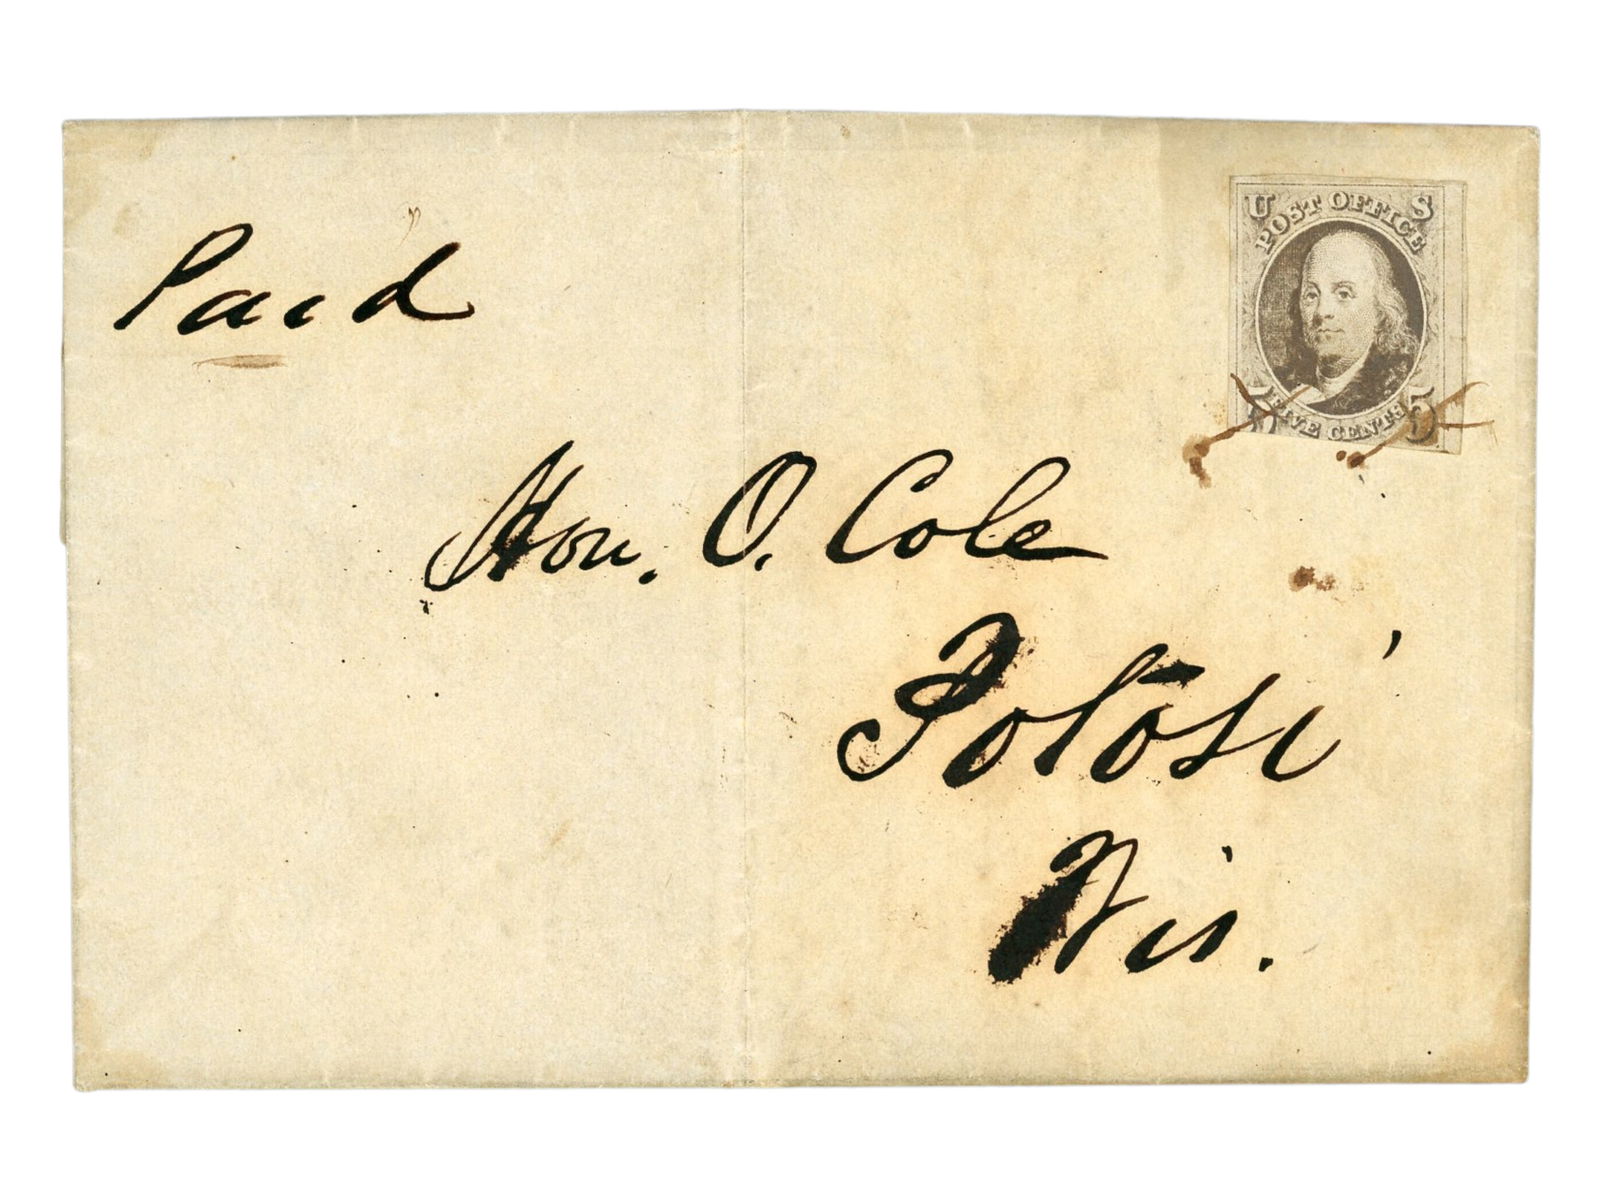 Paid
U S
POST OFFICE
5 FIVE CENTS 5
Hon. O. Cole
Potosi
Wis.